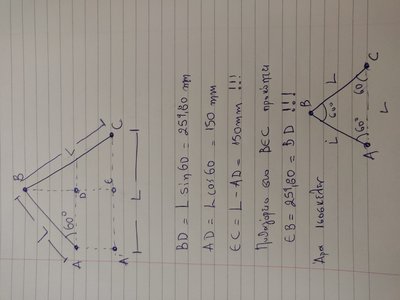 B
L
L
60°
A
D
C
A'
E
L
BD = L sin60 = 259,80 mm
AD = L cos60 = 150 mm
EC = L - AD = 150mm !!!
Πυθαγόριο στο BEC προκύπτει
EB = 259,80 = BD !!!
Άρα ισοσκελές
B
L
60°
L
A
60°
60
C
L